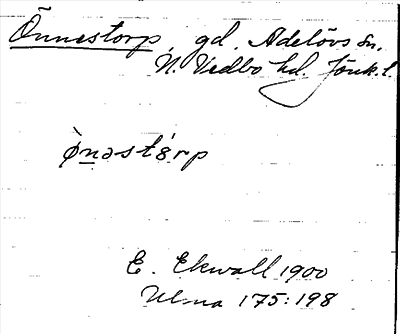 Önnestorp, gd, Adelövs sn.
N. Vedbo hd. Jönk. l.
ò̱nəstórp
E. Ekwall 1900
Ulma 175:198